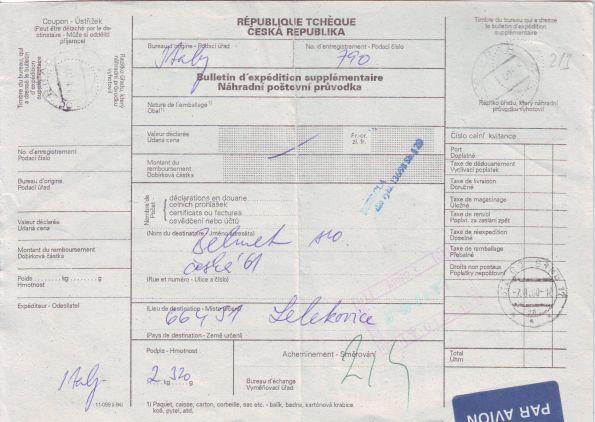 Coupon - Ústřižek
(Peut être détaché par le de-
stinataire - Může si oddělit
příjemce)
Timbre du bureau, qui
a dressé le bulletin
d'expédition
supplémentaire
Razítko úřadu, který
náhradní průvodku
vyhotovil
No. d'enregistrement
Podací číslo
Bureau d'origine
Podací úřad
Valeur déclarée
Udaná cena
Montant du remboursement
Dobírková částka
Poids kg g
Hmotnost
Expéditeur - Odesílatel
Italy
11-099 (I-94)
RÉPUBLIQUE TCHÈQUE
ČESKÁ REPUBLIKA
Bureau d'origine - Podací úřad
No. d'enregistrement - Podací číslo
Italy 790
Bulletin d'expédition supplémentaire
Náhradní poštovní průvodka
Nature de l'emballage 1)
Obal 1)
Valeur déclarée
Udaná cena
Fr.-or.
zl. fr.
Montant du
remboursement
Dobírková částka
Nombre de
Počet
déclarations en douane
celních prohlášek
certificats ou factures
osvědčení nebo účtů
(Nom du destinataire - Jméno adresáta)
Belmet sro.
česká 61
(Rue et numéro - Ulice a číslo)
(Lieu de destination - Místo určení)
664 31 Lelekovice
(Pays de destination - Země určení)
Podpis - Hmotnost
2 320
kg g
Acheminement - Směrování
215
Bureau d'échange
Vyměňovací úřad
1) Paquet, caisse, carton, corbeille, sac etc. - balík, bedna, kartónová krabice,
koš, pytel, atd.
Timbre du bureau qui a dressé
le bulletin d'expédition
supplémentaire
Razítko úřadu, který náhradní
průvodku vyhotovil
Číslo celní kvitance
Port
Doplatné
Taxe de dédouanement
Vyclívací poplatek
Taxe de livraison
Doručné
Taxe de magasinage
Úložné
Taxe de renvoi
Poplat. za zaslání zpět
Taxe de réexpedition
Doselné
Taxe de remballage
Přebalné
Droits non postaux
Poplatky nepoštovní
Total
Úhrn
PAR AVION